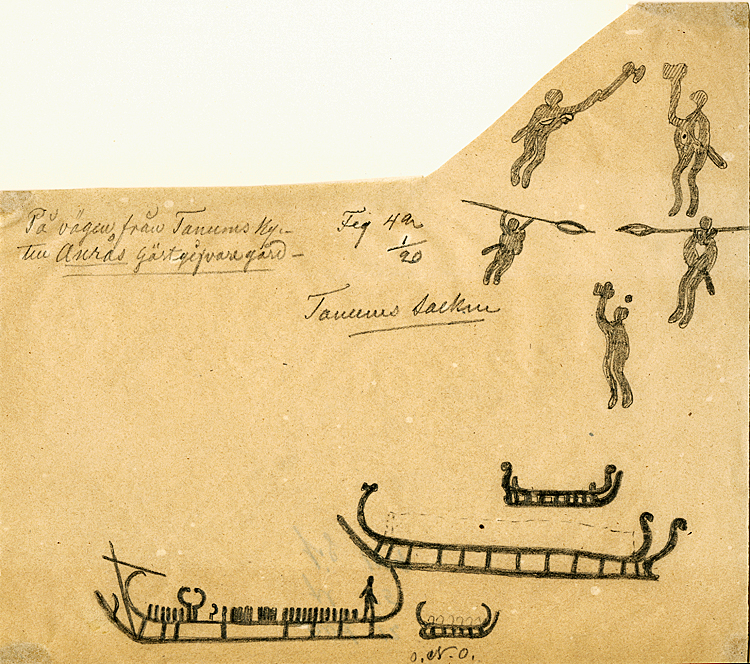 På vägen från Tanums Ky-
till Anrås Gästgifvaregård -
Fig 4a
1/20
Tanums Socken
o. N. o.